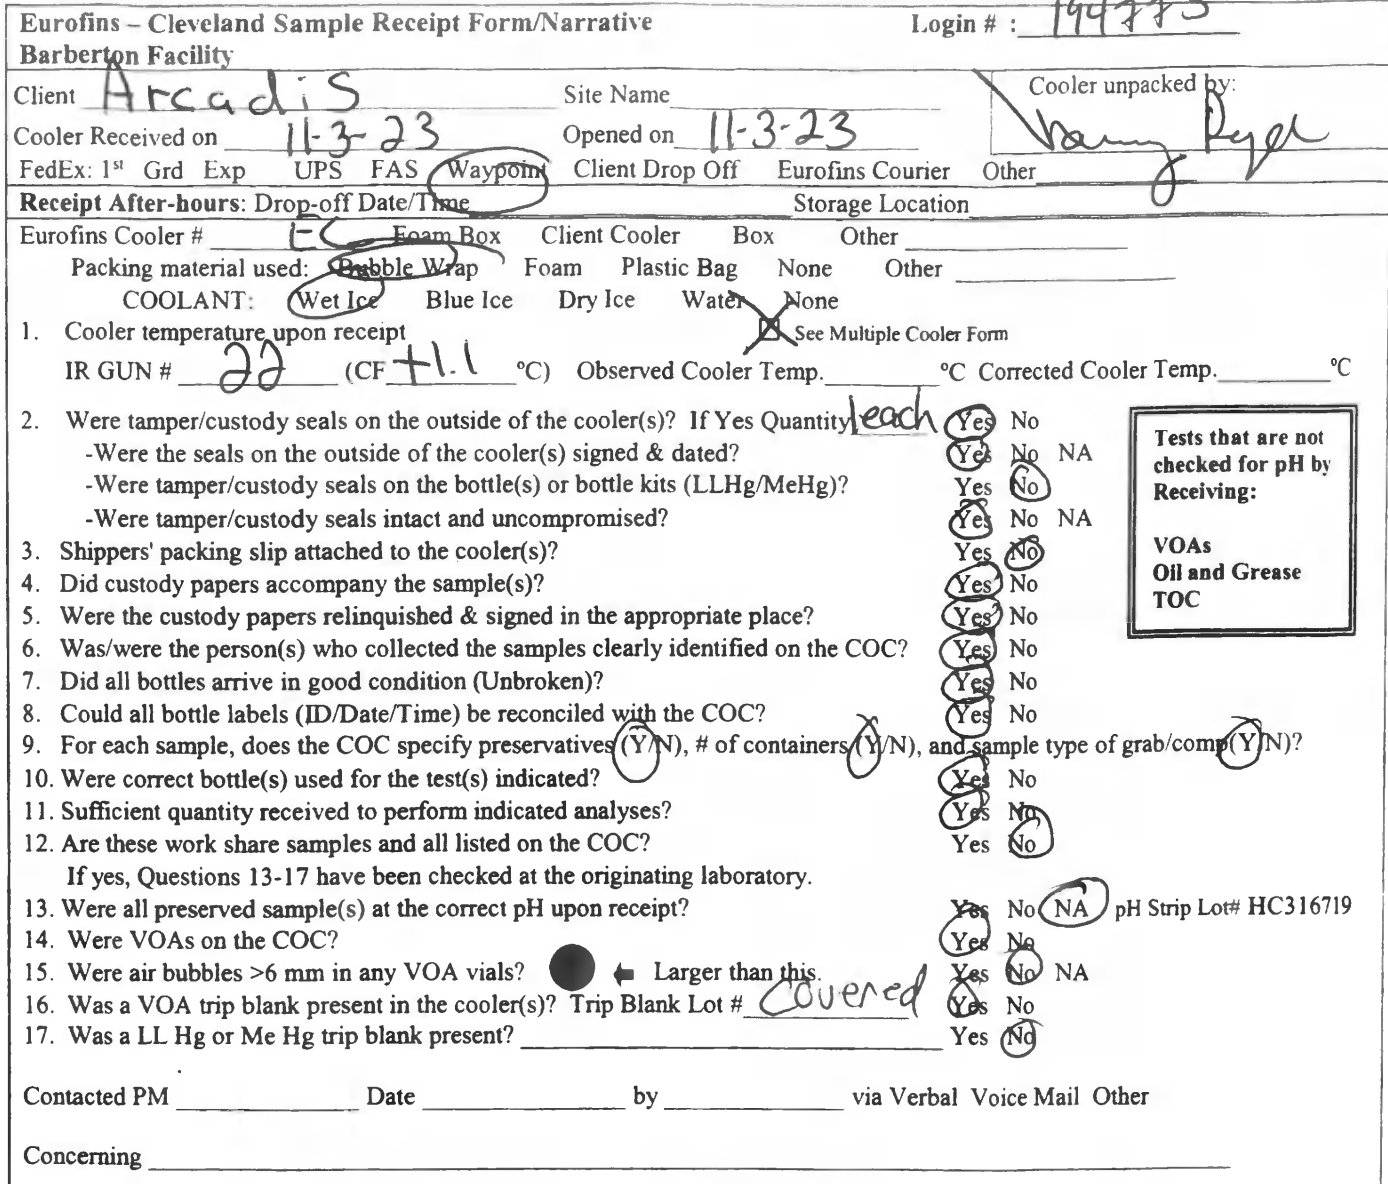 Eurofins – Cleveland Sample Receipt Form/Narrative Login # : 194775
Barberton Facility
Client Arcadis Site Name Cooler unpacked by:
Cooler Received on 11-3-23 Opened on 11-3-23
FedEx: 1st Grd Exp UPS FAS Waypoint Client Drop Off Eurofins Courier Other
Receipt After-hours: Drop-off Date/Time Storage Location
Eurofins Cooler # EC Foam Box Client Cooler Box Other
Packing material used: Bubble Wrap Foam Plastic Bag None Other
COOLANT: Wet Ice Blue Ice Dry Ice Water None
1. Cooler temperature upon receipt See Multiple Cooler Form
IR GUN # 22 (CF +1.1 °C) Observed Cooler Temp. °C Corrected Cooler Temp. °C
2. Were tamper/custody seals on the outside of the cooler(s)? If Yes Quantity 1 each Yes No
-Were the seals on the outside of the cooler(s) signed & dated? Yes No NA
-Were tamper/custody seals on the bottle(s) or bottle kits (LLHg/MeHg)? Yes No
-Were tamper/custody seals intact and uncompromised? Yes No NA
3. Shippers' packing slip attached to the cooler(s)? Yes No
4. Did custody papers accompany the sample(s)? Yes No
5. Were the custody papers relinquished & signed in the appropriate place? Yes No
6. Was/were the person(s) who collected the samples clearly identified on the COC? Yes No
7. Did all bottles arrive in good condition (Unbroken)? Yes No
8. Could all bottle labels (ID/Date/Time) be reconciled with the COC? Yes No
9. For each sample, does the COC specify preservatives (Y/N), # of containers (Y/N), and sample type of grab/comp(Y/N)?
10. Were correct bottle(s) used for the test(s) indicated? Yes No
11. Sufficient quantity received to perform indicated analyses? Yes No
12. Are these work share samples and all listed on the COC? Yes No
If yes, Questions 13-17 have been checked at the originating laboratory.
13. Were all preserved sample(s) at the correct pH upon receipt? Yes No NA pH Strip Lot# HC316719
14. Were VOAs on the COC? Yes No
15. Were air bubbles >6 mm in any VOA vials? Larger than this. Yes No NA
16. Was a VOA trip blank present in the cooler(s)? Trip Blank Lot # Covered Yes No
17. Was a LL Hg or Me Hg trip blank present? Yes No
Tests that are not
checked for pH by
Receiving:
VOAs
Oil and Grease
TOC
Contacted PM Date by via Verbal Voice Mail Other
Concerning